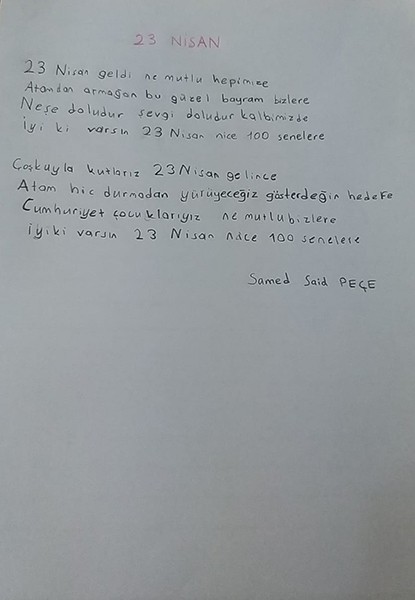 23 NİSAN
23 Nisan geldi ne mutlu hepimize
Atandan armağan bu güzel bayram bizlere
Neşe doludur sevgi doludur kalbimizde
İyi ki varsın 23 Nisan nice 100 senelere
Coşkuyla kutlarız 23 Nisan gelince
Atam hic durmadan yürüyeceğiz gösterdeğin hedefe
Cumhuriyet çocuklarıyız ne mutlu bizlere
iyiki varsın 23 Nisan nice 100 senelere
Samed Said PEÇE